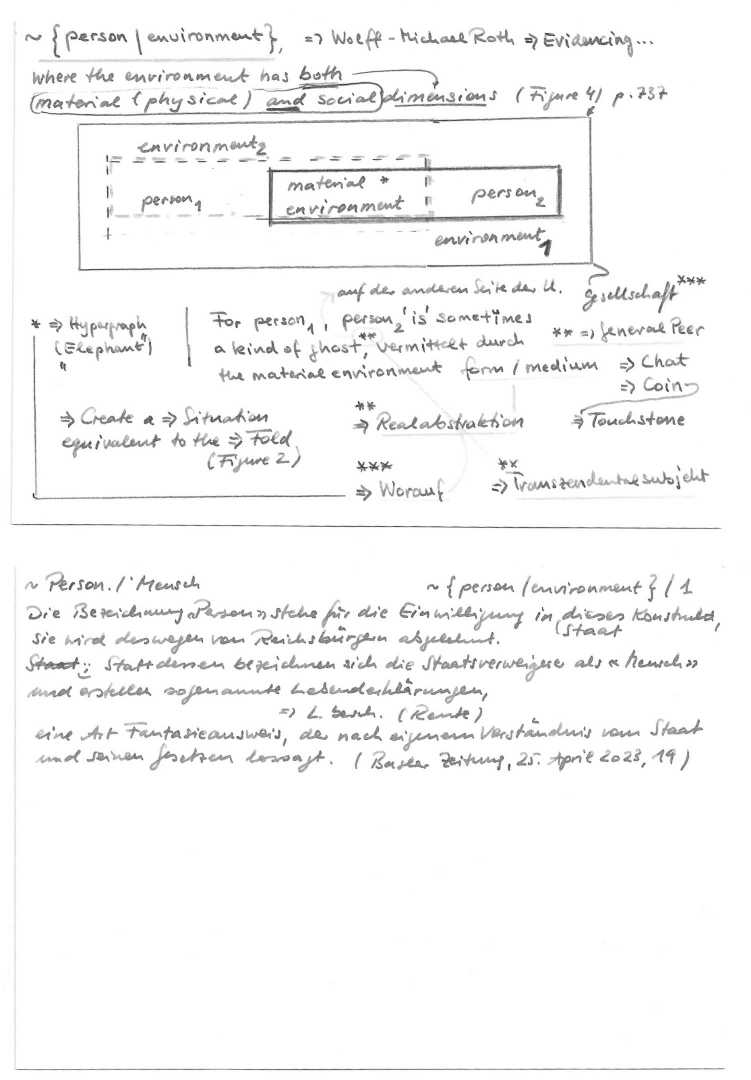 ~ {person / environment}, => Wolff-Michael Roth => Evidencing...
where the environment has both
(material (physical) and social) dimensions (Figure 4) p. 737
environment2
person1
material *
environment
person2
environment1
auf der anderen Seite der U.
Gesellschaft ***
* => Hypergraph
("Elephant")
For person1, person2 'is' sometimes
a kind of ghost,** vermittelt durch
the material environment form / medium
** => General Peer
=> Chat
=> Coin
=> Create a => Situation
equivalent to the => Fold
(Figure 2)
**
=> Realabstraktion
=> Touchstone
***
=> Worauf
**
=> Transzendentalsubjekt
~ Person. / Mensch
~ {person / environment} / 1
Die Bezeichnung «Person» stehe für die Einwilligung in dieses Konstrukt,
(Staat
sie wird deswegen von Reichsbürgern abgelehnt.
Staat: Stattdessen bezeichnen sich die Staatsverweigerer als «Mensch»
und erstellen sogenannte Lebenderklärungen,
=> L. besch. (Rente)
eine Art Fantasieausweis, der nach eigenem Verständnis vom Staat
und seinen Gesetzen lossagt. (Basler Zeitung, 25. April 2023, 19)